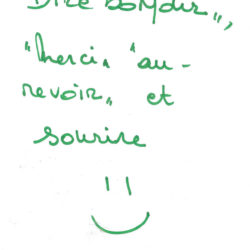 Dire bonjour",
"Merci" "au-
revoir" et
sourire